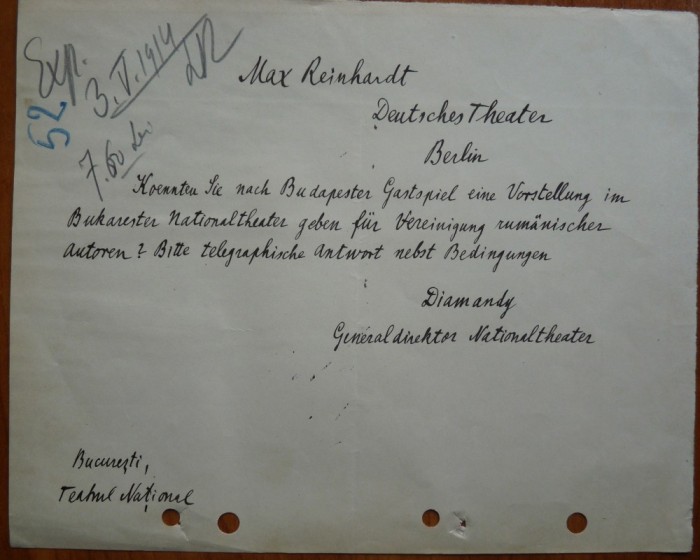 Exp.
3.V.1914
52
7.60 Lei.
Max Reinhardt
Deutsches Theater
Berlin
Koennten Sie nach Budapester Gastspiel eine Vorstellung im
Bukarester Nationaltheater geben für Vereinigung rumänischer
Autoren? Bitte telegraphische Antwort nebst Bedingungen
Diamandy
Generaldirektor Nationaltheater
București,
Teatrul Național